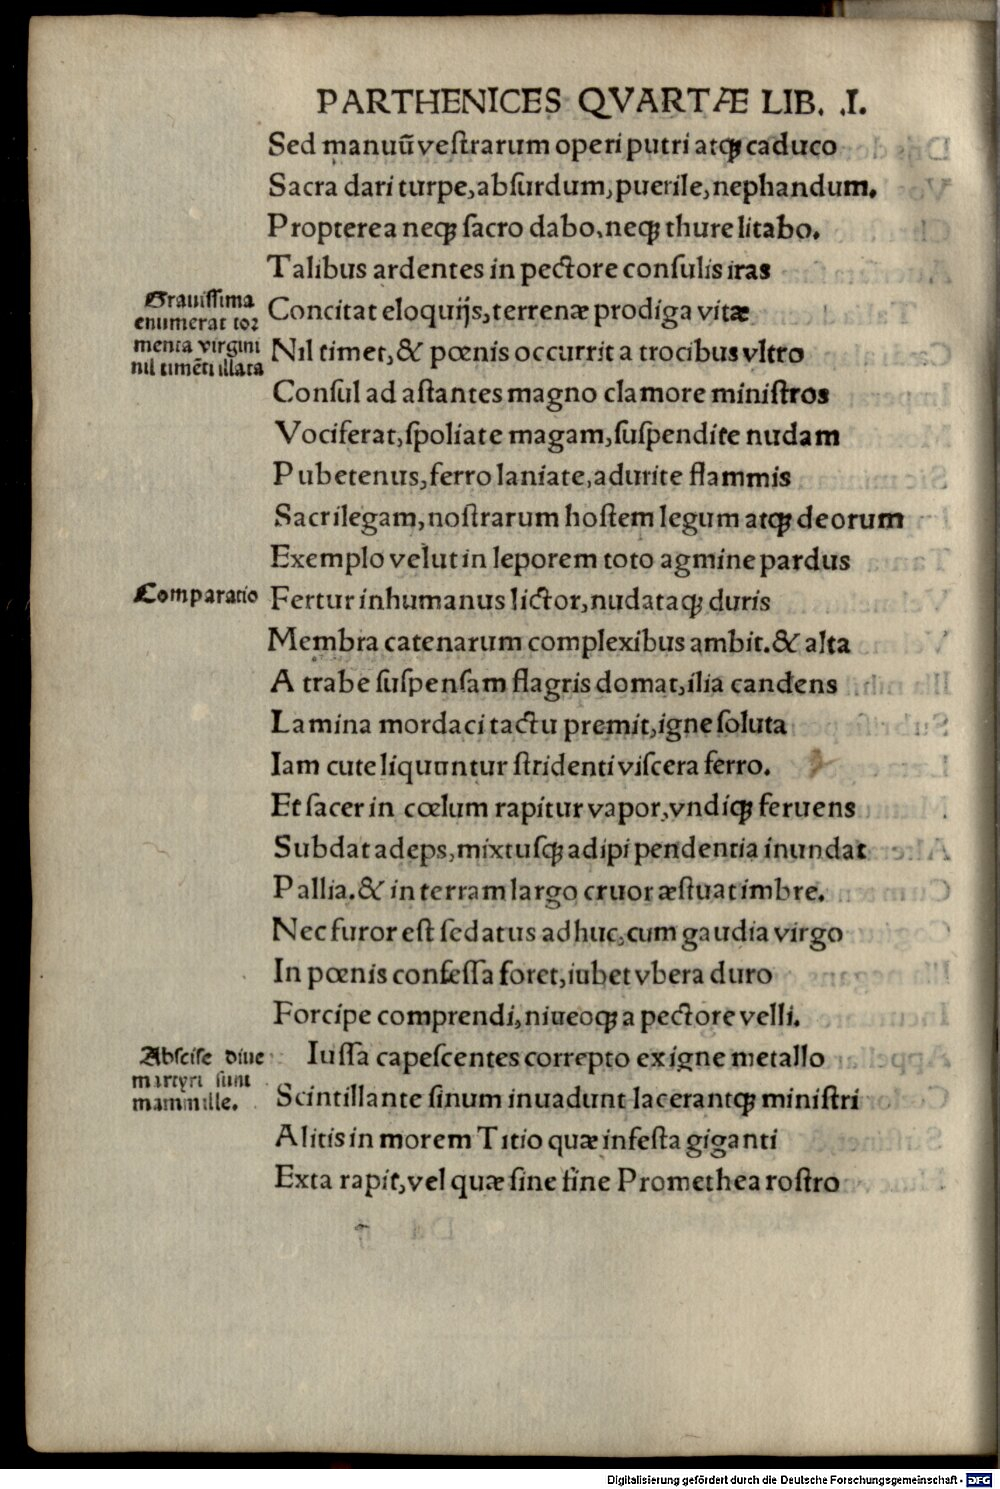 PARTHENICES QVARTÆ LIB. .I.
Sed manuũ vestrarum operi putri atqꝫ caduco
Sacra dari turpe, absurdum, puerile, nephandum.
Propterea neqꝫ sacro dabo, neqꝫ thure litabo.
Talibus ardentes in pectore consulis iras
Grauissima
enumerat tor
menta virgini
nil timẽti illata
Concitat eloquijs, terrenæ prodiga vitæ
Nil timet, & pœnis occurrit atrocibus vltro
Consul ad astantes magno clamore ministros
Vociferat, spoliate magam, suspendite nudam
Pubetenus, ferro laniate, adurite flammis
Sacrilegam, nostrarum hostem legum atqꝫ deorum
Exemplo velut in leporem toto agmine pardus
Comparatio
Fertur inhumanus lictor, nudataqꝫ duris
Membra catenarum complexibus ambit. & alta
A trabe suspensam flagris domat, ilia candens
Lamina mordaci tactu premit, igne soluta
Iam cute liquuntur stridenti viscera ferro.
Et sacer in cœlum rapitur vapor, vndiqꝫ feruens
Subdat adeps, mixtusqꝫ adipi pendentia inundat
Pallia. & in terram largo cruor æstuat imbre.
Nec furor est sedatus adhuc, cum gaudia virgo
In pœnis confessa foret, iubet vbera duro
Forcipe comprendi, niueoqꝫ a pectore velli.
Abscise diue
martyri sunt
mammille.
Iussa capescentes correpto ex igne metallo
Scintillante sinum inuadunt lacerantqꝫ ministri
Alitis in morem Titio quæ infesta giganti
Exta rapit, vel quæ sine fine Promethea rostro
Digitalisierung gefördert durch die Deutsche Forschungsgemeinschaft - DFG